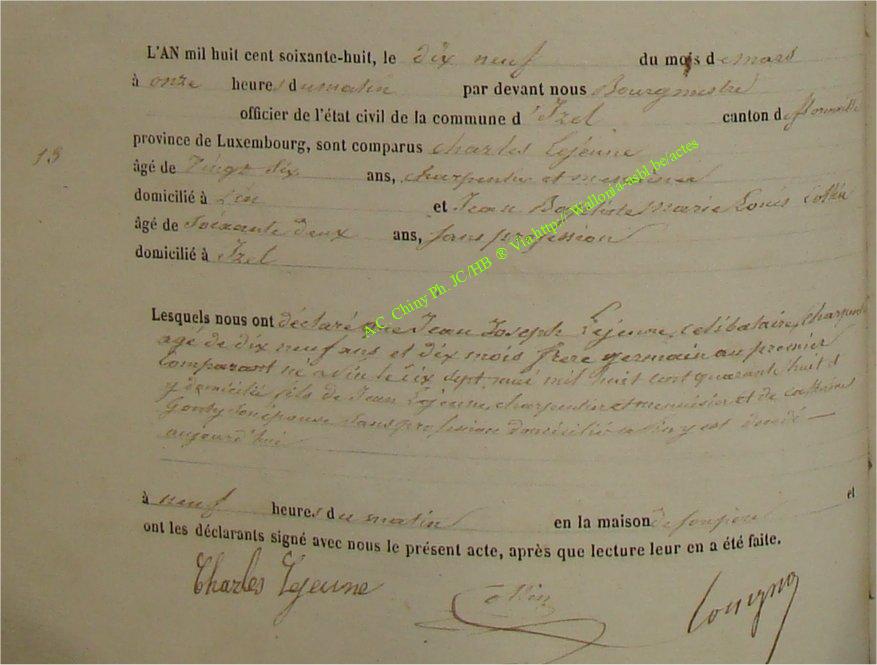 L'AN mil huit cent soixante-huit, le dix neuf du mois de mars
à onze heures du matin par devant nous Bourgmestre
officier de l'état civil de la commune d'Izel canton de florenville
13
province de Luxembourg, sont comparus charles Lejeune
âgé de Vingt Six ans, charpentier et menuisier
domicilié à Pin et Jean Baptiste Marie Louis Collin
âgé de Soixante deux ans, Sans profession
domicilié à Izel
A.C. Chiny Ph. JC/HB ® Via http://Wallonia-asbl.be/actes
Lesquels nous ont déclaré que Jean Joseph Lejeune, Celibataire, Charpentier
agé de dix neuf ans et dix mois frère germain au premier
Comparant né a Pin le mai mil huit cent quarante huit
y domicilié fils de Jean Lejeune, charpentier et menuisier et de
son épouse, sans profession domiciliés a Pin y est décédé
aujourd'hui
à neuf heures du matin en la maison de son père et
ont les déclarants signé avec nous le présent acte, après que lecture leur en a été faite.
Charles Lejeune Collin